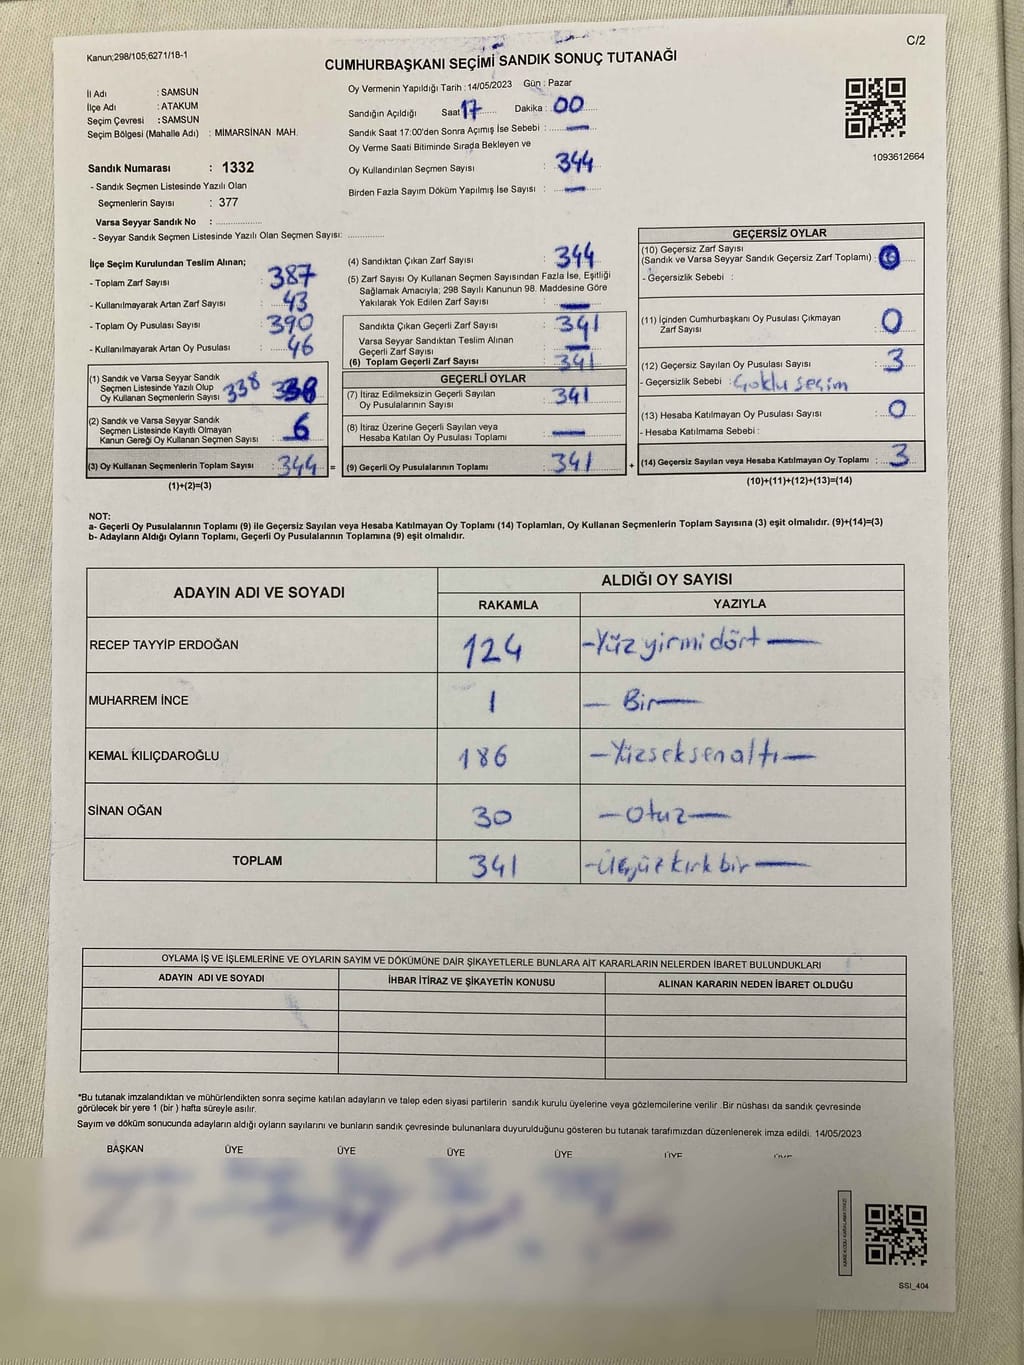 Kanun;298/105;6271/18-1
C/2
CUMHURBAŞKANI SEÇİMİ SANDIK SONUÇ TUTANAĞI
İl Adı : SAMSUN
İlçe Adı : ATAKUM
Seçim Çevresi : SAMSUN
Seçim Bölgesi (Mahalle Adı) : MİMARSİNAN MAH.
Sandık Numarası : 1332
- Sandık Seçmen Listesinde Yazılı Olan
Seçmenlerin Sayısı : 377
Varsa Seyyar Sandık No : ....................
- Seyyar Sandık Seçmen Listesinde Yazılı Olan Seçmen Sayısı: ..............
Oy Vermenin Yapıldığı Tarih : 14/05/2023 Gün : Pazar
Sandığın Açıldığı Saat 17 Dakika : 00
Sandık Saat 17:00'den Sonra Açımış İse Sebebi : —
Oy Verme Saati Bitiminde Sırada Bekleyen ve
Oy Kullandırılan Seçmen Sayısı : 344
Birden Fazla Sayım Döküm Yapılmış İse Sayısı : —
1093612664
İlçe Seçim Kurulundan Teslim Alınan;
- Toplam Zarf Sayısı : 387
- Kullanılmayarak Artan Zarf Sayısı : 43
- Toplam Oy Pusulası Sayısı : 390
- Kullanılmayarak Artan Oy Pusulası : 46
(1) Sandık ve Varsa Seyyar Sandık
Seçmen Listesinde Yazılı Olup
Oy Kullanan Seçmenlerin Sayısı : 338 338
(2) Sandık ve Varsa Seyyar Sandık
Seçmen Listesinde Kayıtlı Olmayan
Kanun Gereği Oy Kullanan Seçmen Sayısı : 6
(3) Oy Kullanan Seçmenlerin Toplam Sayısı : 344 =
(1)+(2)=(3)
(4) Sandıktan Çıkan Zarf Sayısı : 344
(5) Zarf Sayısı Oy Kullanan Seçmen Sayısından Fazla İse, Eşitliği
Sağlamak Amacıyla; 298 Sayılı Kanunun 98. Maddesine Göre
Yakılarak Yok Edilen Zarf Sayısı : —
Sandıkta Çıkan Geçerli Zarf Sayısı : 341
Varsa Seyyar Sandıktan Teslim Alınan
Geçerli Zarf Sayısı : —
(6) Toplam Geçerli Zarf Sayısı : 341
GEÇERLİ OYLAR
(7) İtiraz Edilmeksizin Geçerli Sayılan
Oy Pusulalarının Sayısı : 341
(8) İtiraz Üzerine Geçerli Sayılan veya
Hesaba Katılan Oy Pusulası Toplamı : —
(9) Geçerli Oy Pusulalarının Toplamı : 341 +
GEÇERSİZ OYLAR
(10) Geçersiz Zarf Sayısı
(Sandık ve Varsa Seyyar Sandık Geçersiz Zarf Toplamı) : 0
- Geçersizlik Sebebi :
(11) İçinden Cumhurbaşkanı Oy Pusulası Çıkmayan
Zarf Sayısı : 0
(12) Geçersiz Sayılan Oy Pusulası Sayısı : 3
- Geçersizlik Sebebi : Çoklu seçim
(13) Hesaba Katılmayan Oy Pusulası Sayısı : 0
- Hesaba Katılmama Sebebi :
(14) Geçersiz Sayılan veya Hesaba Katılmayan Oy Toplamı : 3
(10)+(11)+(12)+(13)=(14)
NOT:
a- Geçerli Oy Pusulalarının Toplamı (9) ile Geçersiz Sayılan veya Hesaba Katılmayan Oy Toplamı (14) Toplamları, Oy Kullanan Seçmenlerin Toplam Sayısına (3) eşit olmalıdır. (9)+(14)=(3)
b- Adayların Aldığı Oyların Toplamı, Geçerli Oy Pusulalarının Toplamına (9) eşit olmalıdır.
ADAYIN ADI VE SOYADI
ALDIĞI OY SAYISI
RAKAMLA YAZIYLA
RECEP TAYYİP ERDOĞAN 124 - Yüz yirmi dört —
MUHARREM İNCE 1 — Bir —
KEMAL KILIÇDAROĞLU 186 — Yüzseksenaltı —
SİNAN OĞAN 30 — otuz —
TOPLAM 341 - Üçyüzkırk bir —
OYLAMA İŞ VE İŞLEMLERİNE VE OYLARIN SAYIM VE DÖKÜMÜNE DAİR ŞİKAYETLERLE BUNLARA AİT KARARLARIN NELERDEN İBARET BULUNDUKLARI
ADAYIN ADI VE SOYADI İHBAR İTİRAZ VE ŞİKAYETİN KONUSU ALINAN KARARIN NEDEN İBARET OLDUĞU
*Bu tutanak imzalandıktan ve mühürlendikten sonra seçime katılan adayların ve talep eden siyasi partilerin sandık kurulu üyelerine veya gözlemcilerine verilir .Bir nüshası da sandık çevresinde
görülecek bir yere 1 (bir ) hafta süreyle asılır.
Sayım ve döküm sonucunda adayların aldığı oyların sayılarını ve bunların sandık çevresinde bulunanlara duyurulduğunu gösteren bu tutanak tarafımızdan düzenlenerek imza edildi. 14/05/2023
BAŞKAN ÜYE ÜYE ÜYE ÜYE ÜYE ÜYE
SSI_404